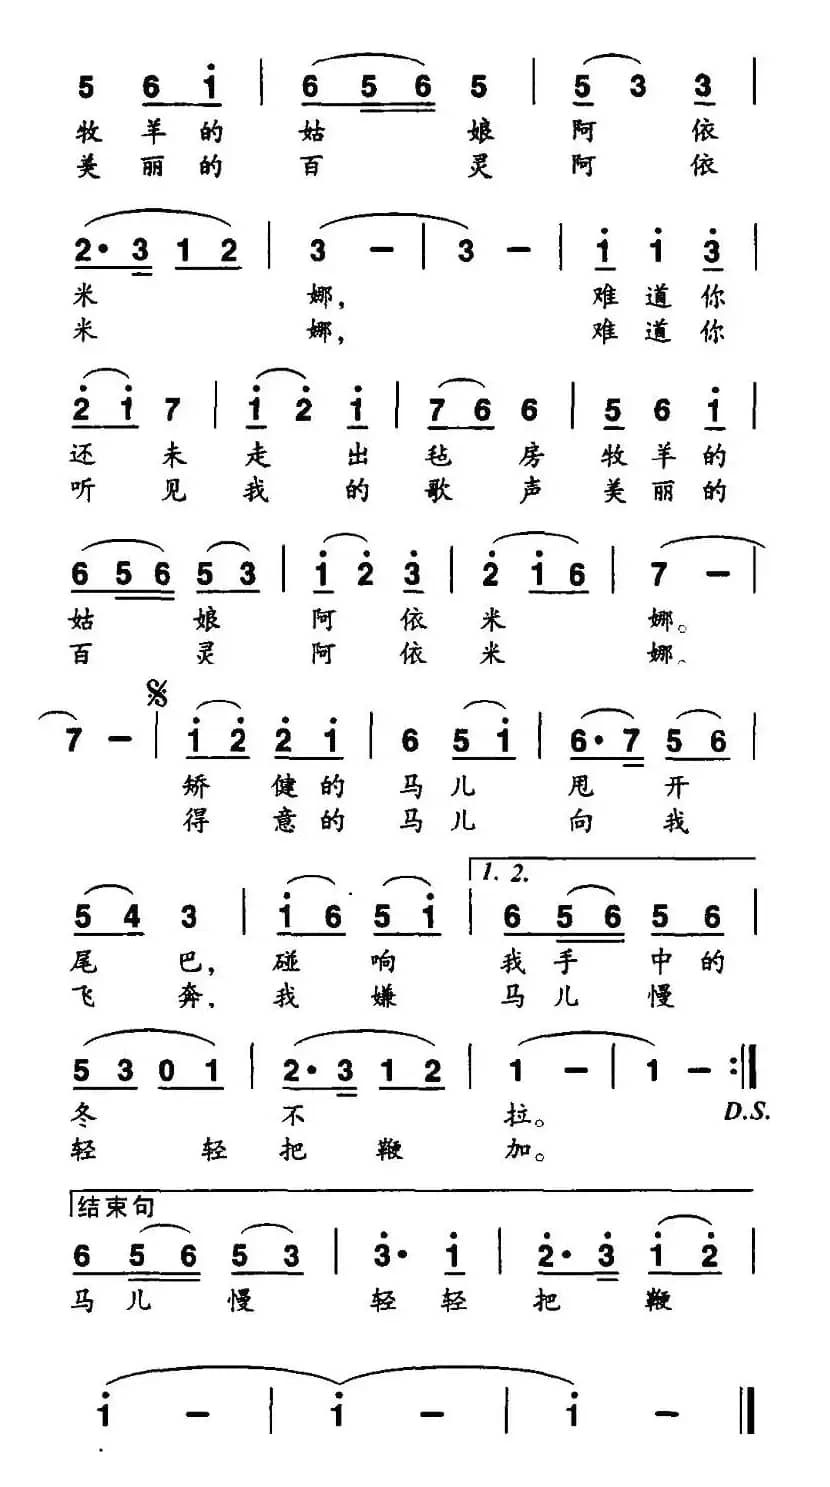 5 6 i | 6 5 6 5 | 5 3 3 |
牧羊的 姑 娘 阿 依
美丽的 百 灵 阿 依
2· 3 1 2 | 3 - | 3 - | i i 3 |
米 娜, 难道你
米 娜, 难道你
2 i 7 | i 2 i | 7 6 6 | 5 6 i |
还 未 走 出 毡 房 牧羊的
听 见 我 的 歌 声 美丽的
6 5 6 5 3 | i 2 3 | 2 i 6 | 7 - |
姑 娘 阿 依 米 娜。
百 灵 阿 依 米 娜、
7 - | i 2 2 i | 6 5 i | 6· 7 5 6 |
矫 健的 马儿 甩 开
得 意的 马儿 向 我
1. 2.
5 4 3 | i 6 5 i | 6 5 6 5 6 |
尾 巴, 碰 响 我手 中的
飞 奔, 我 嫌 马儿 慢
5 3 0 1 | 2· 3 1 2 | 1 - | 1 - :||
冬 不 拉。 D.S.
轻 轻把 鞭 加。
结束句
6 5 6 5 3 | 3· i | 2· 3 i 2 |
马儿 慢 轻 轻 把 鞭
i - | i - | i - ||